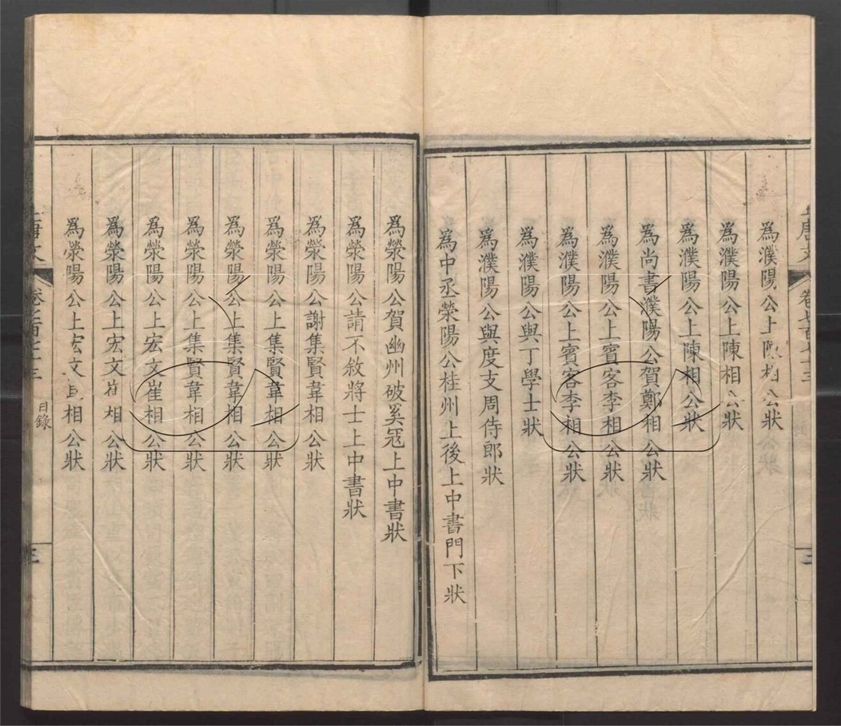 為濮陽公上陳相公狀
為濮陽公上陳相公狀
為濮陽公上陳相公狀
為尚書濮陽公賀鄭相公狀
為濮陽公上賓客李相公狀
為濮陽公上賓客李相公狀
為濮陽公與丁學士狀
為濮陽公與度支周侍郎狀
為中丞滎陽公桂州上後上中書門下狀
為滎陽公賀幽州破奚寇上中書狀
為滎陽公請不敘將士上中書狀
為滎陽公謝集賢韋相公狀
為滎陽公上集賢韋相公狀
為滎陽公上集賢韋相公狀
為滎陽公上集賢韋相公狀
為滎陽公上宏文崔相公狀
為滎陽公上宏文崔相公狀
為滎陽公上宏文相公狀
唐文 卷七百七十三 目錄 三